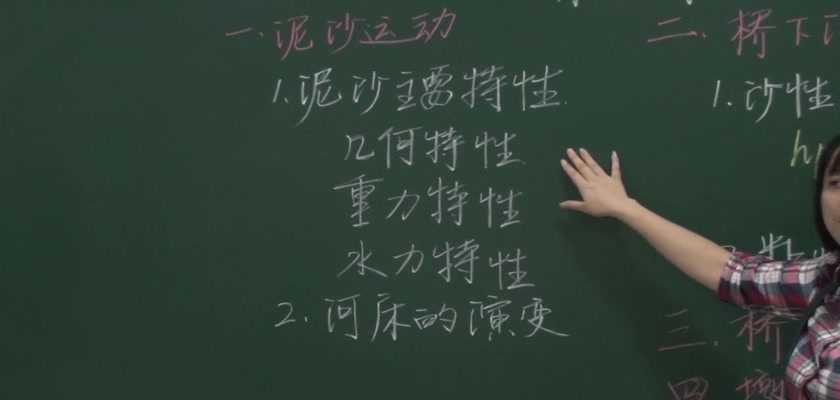 一.泥沙运动
1.泥沙主要特性.
几何特性
重力特性
水力特性
2.河床的演变
二.桥下
1.沙性
h
三.桥
四.